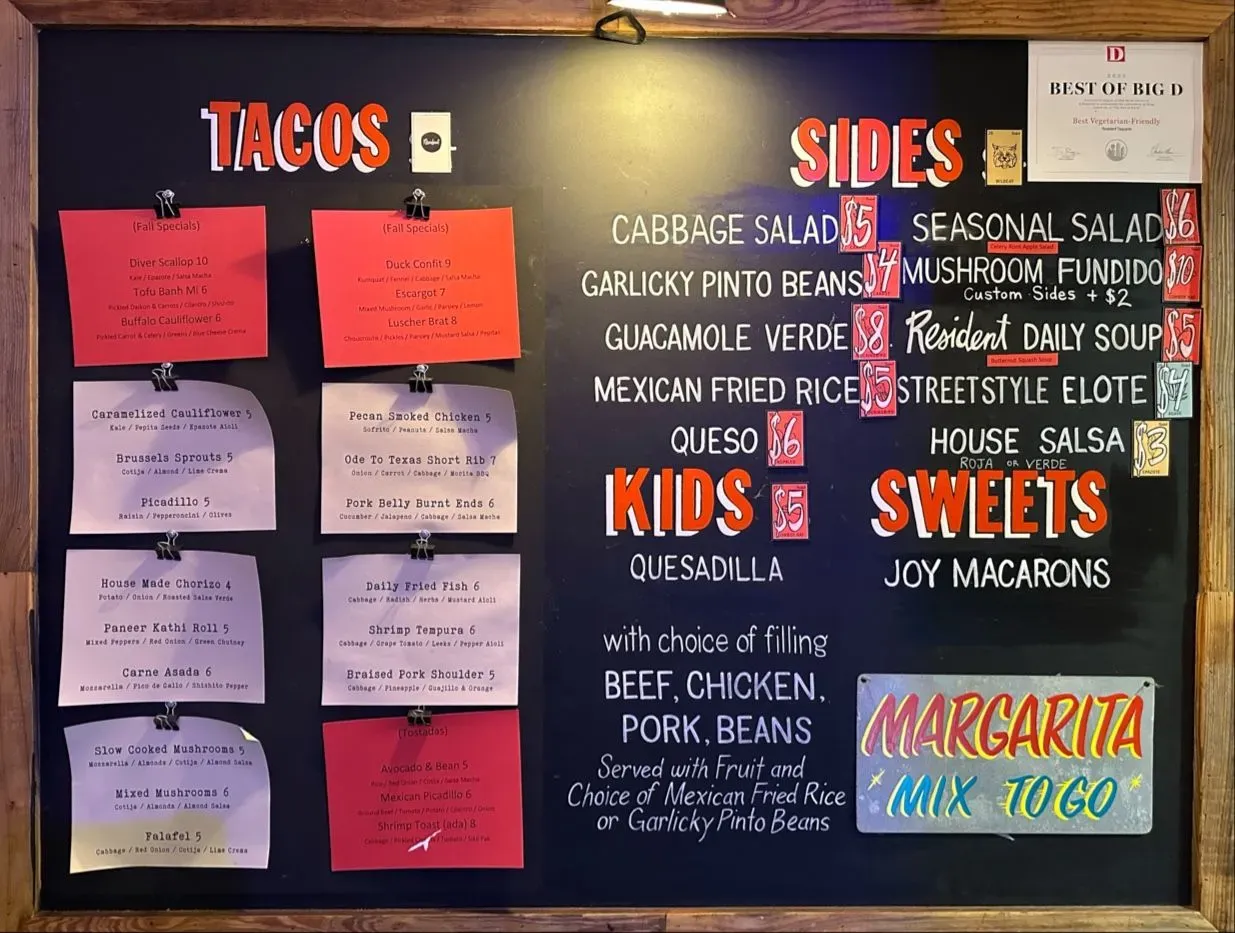 TACOS
(Fall Specials)
Diver Scallop 10
Kale / Epazote / Salsa Macha
Tofu Banh Mi 6
Pickled Daikon & Carrots / Cilantro / Shishito
Buffalo Cauliflower 6
Pickled Carrot & Celery / Greens / Blue Cheese Crema
(Fall Specials)
Duck Confit 9
Kumquat / Fennel / Cabbage / Salsa Macha
Escargot 7
Mixed Mushroom / Garlic / Parsley / Lemon
Luscher Brat 8
Choucroute / Pickles / Parsley / Mustard Salsa / Pepitas
Caramelized Cauliflower 5
Kale / Pepita Seeds / Epazote Aioli
Brussels Sprouts 5
Cotija / Almond / Lime Crema
Picadillo 5
Raisin / Pepperoncini / Olives
Pecan Smoked Chicken 5
Sofrito / Peanuts / Salsa Macha
Ode To Texas Short Rib 7
Onion / Carrot / Cabbage / Morita BBQ
Pork Belly Burnt Ends 6
Cucumber / Jalapeno / Cabbage / Salsa Macha
House Made Chorizo 4
Potato / Onion / Roasted Salsa Verde
Paneer Kathi Roll 5
Mixed Peppers / Red Onion / Green Chutney
Carne Asada 6
Mozzarella / Pico de Gallo / Shishito Pepper
Daily Fried Fish 6
Cabbage / Radish / Herbs / Mustard Aioli
Shrimp Tempura 6
Cabbage / Grape Tomato / Leeks / Pepper Aioli
Braised Pork Shoulder 5
Cabbage / Pineapple / Guajillo & Orange
Slow Cooked Mushrooms 5
Mozzarella / Almonds / Cotija / Almond Salsa
Mixed Mushrooms 6
Cotija / Almonds / Almond Salsa
Falafel 5
Cabbage / Red Onion / Cotija / Lime Crema
(Tostadas)
Avocado & Bean 5
Red Onion / Cotija / Salsa Macha
Mexican Picadillo 6
Ground Beef / Tomato / Potato / Cilantro / Onion
Shrimp Toast (ada) 8
SIDES
CABBAGE SALAD $5
SEASONAL SALAD $6
Celery Root Apple Salad
GARLICKY PINTO BEANS $4
MUSHROOM FUNDIDO $10
Custom Sides + $2
GUACAMOLE VERDE $8
Resident DAILY SOUP $5
Butternut Squash Soup
MEXICAN FRIED RICE $5
STREETSTYLE ELOTE $4
QUESO $6
HOUSE SALSA $3
ROJA OR VERDE
KIDS $5
QUESADILLA
with choice of filling
BEEF, CHICKEN,
PORK, BEANS
Served with Fruit and
Choice of Mexican Fried Rice
or Garlicky Pinto Beans
SWEETS
JOY MACARONS
MARGARITA
MIX TO GO
D
BEST OF BIG D
Best Vegetarian-Friendly
Resident Taqueria